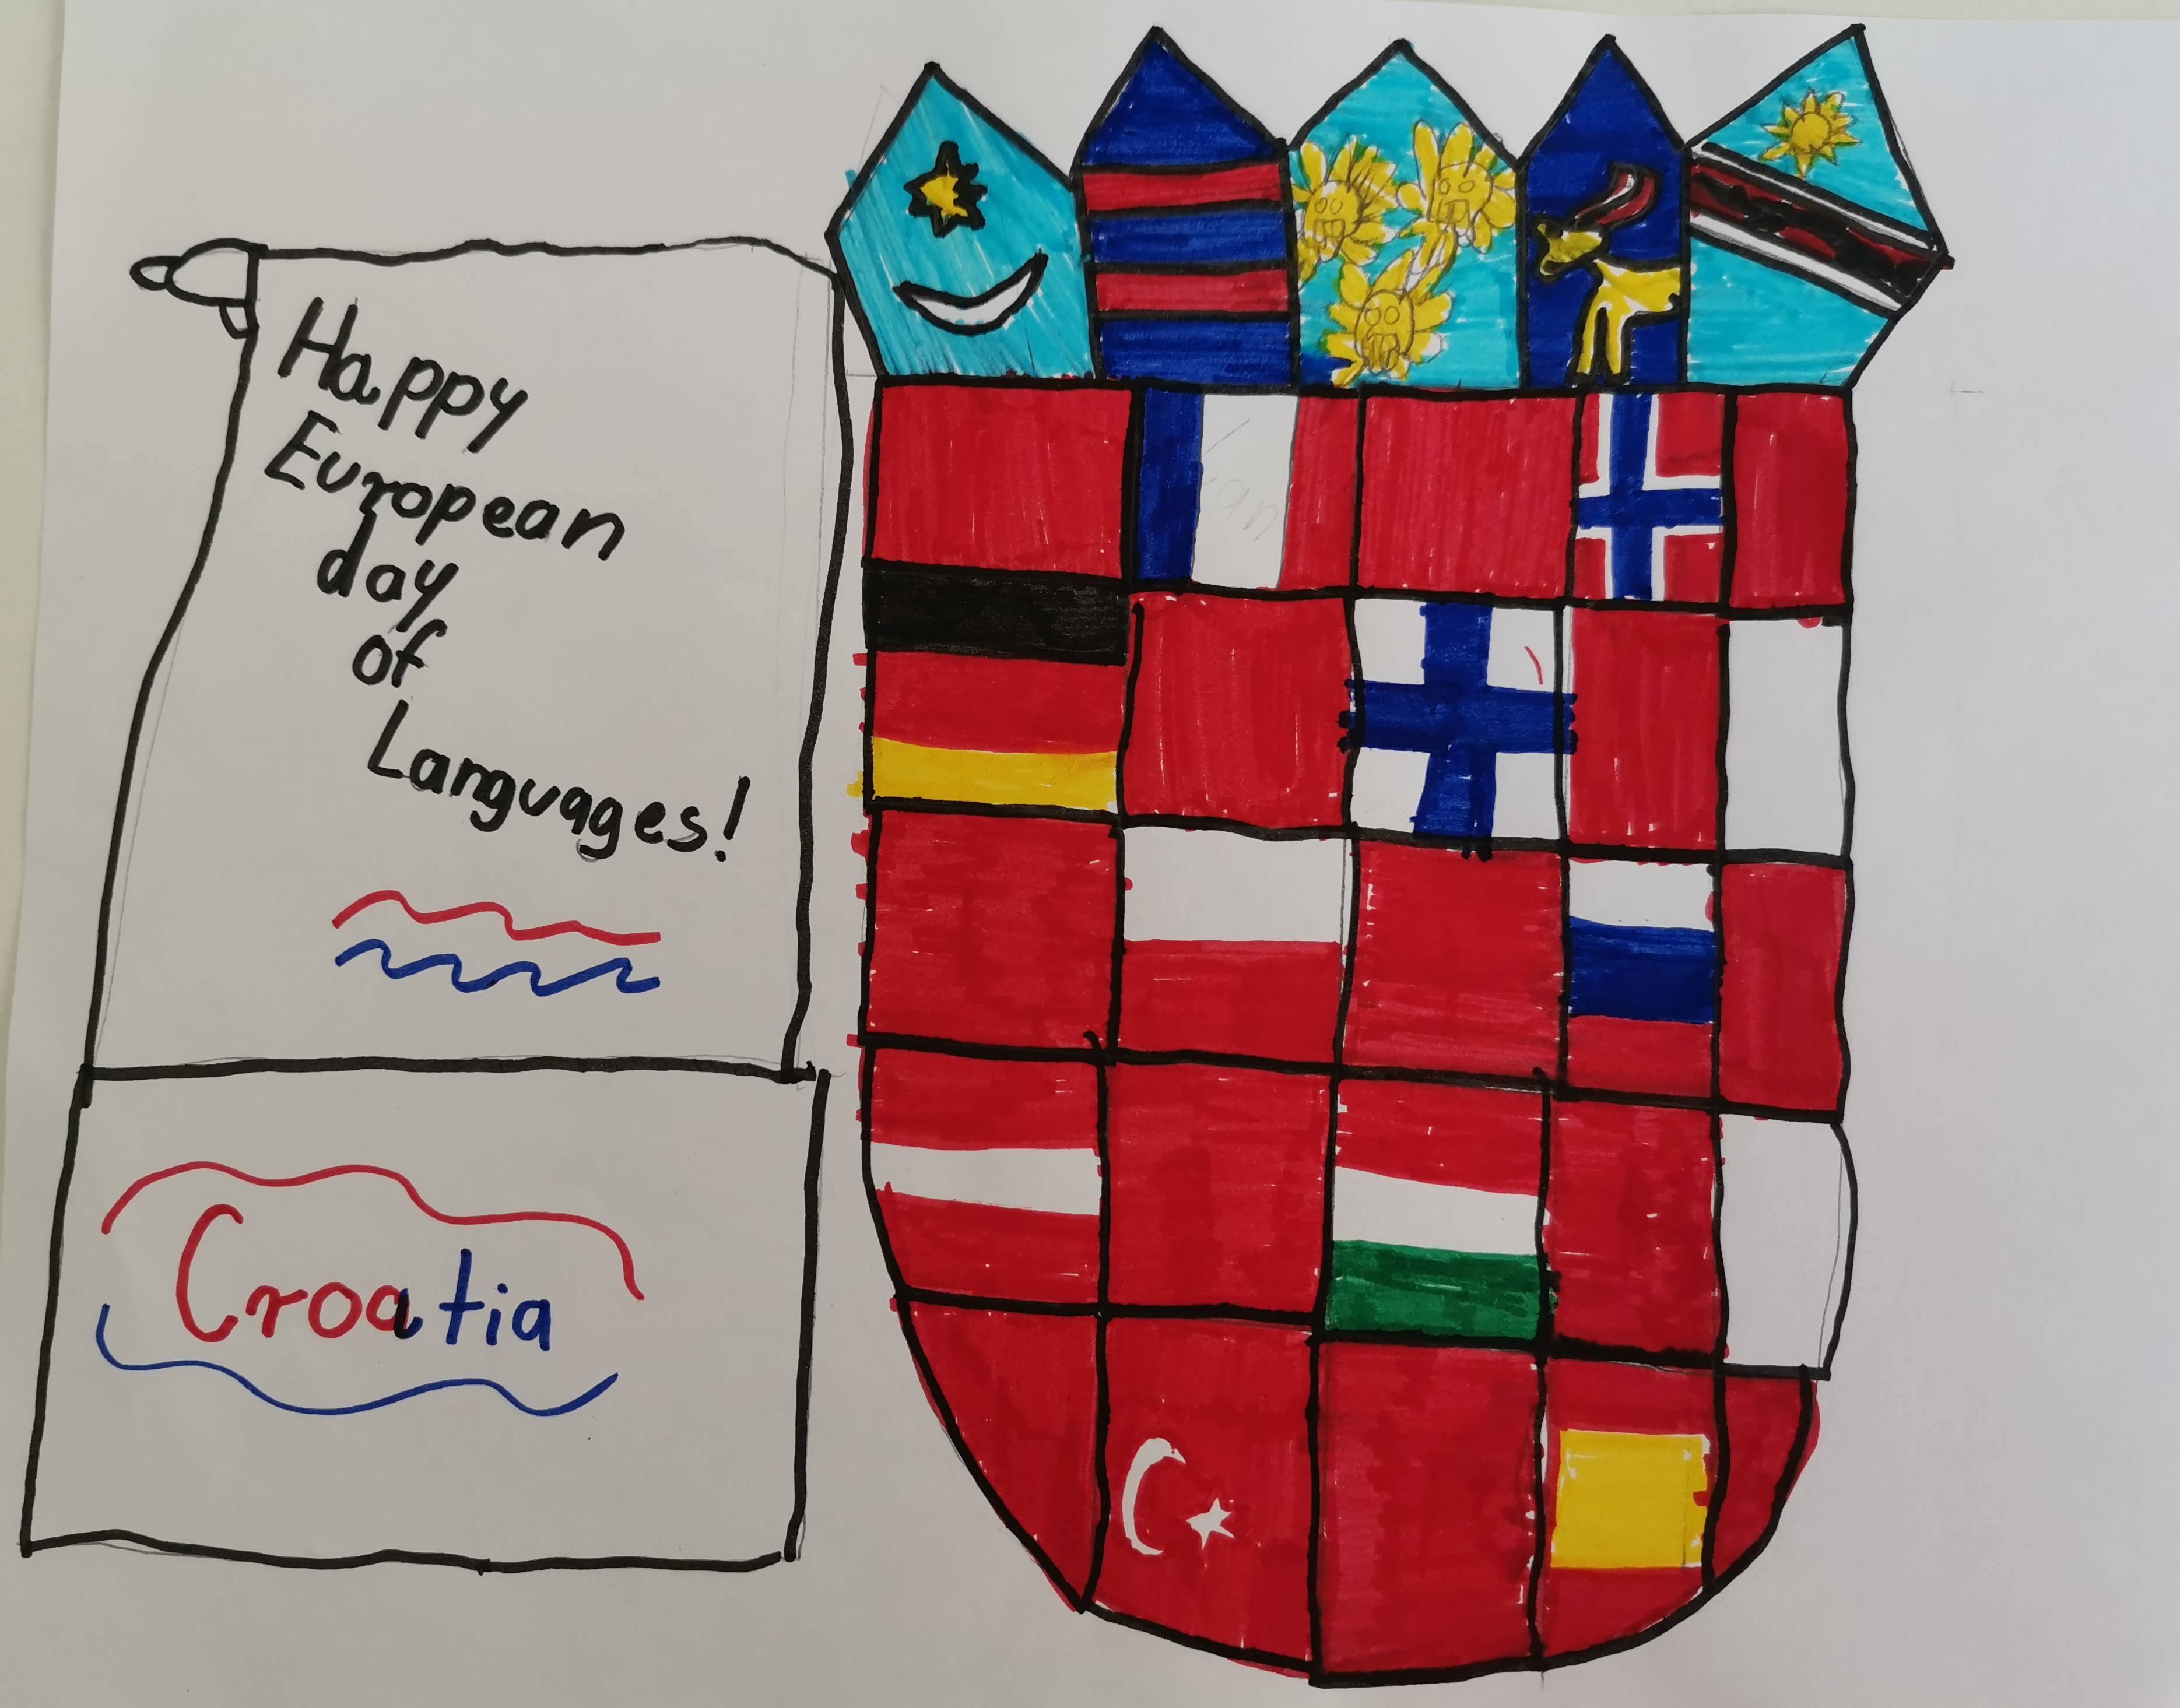 Happy
European
day
of
Languages!
Croatia